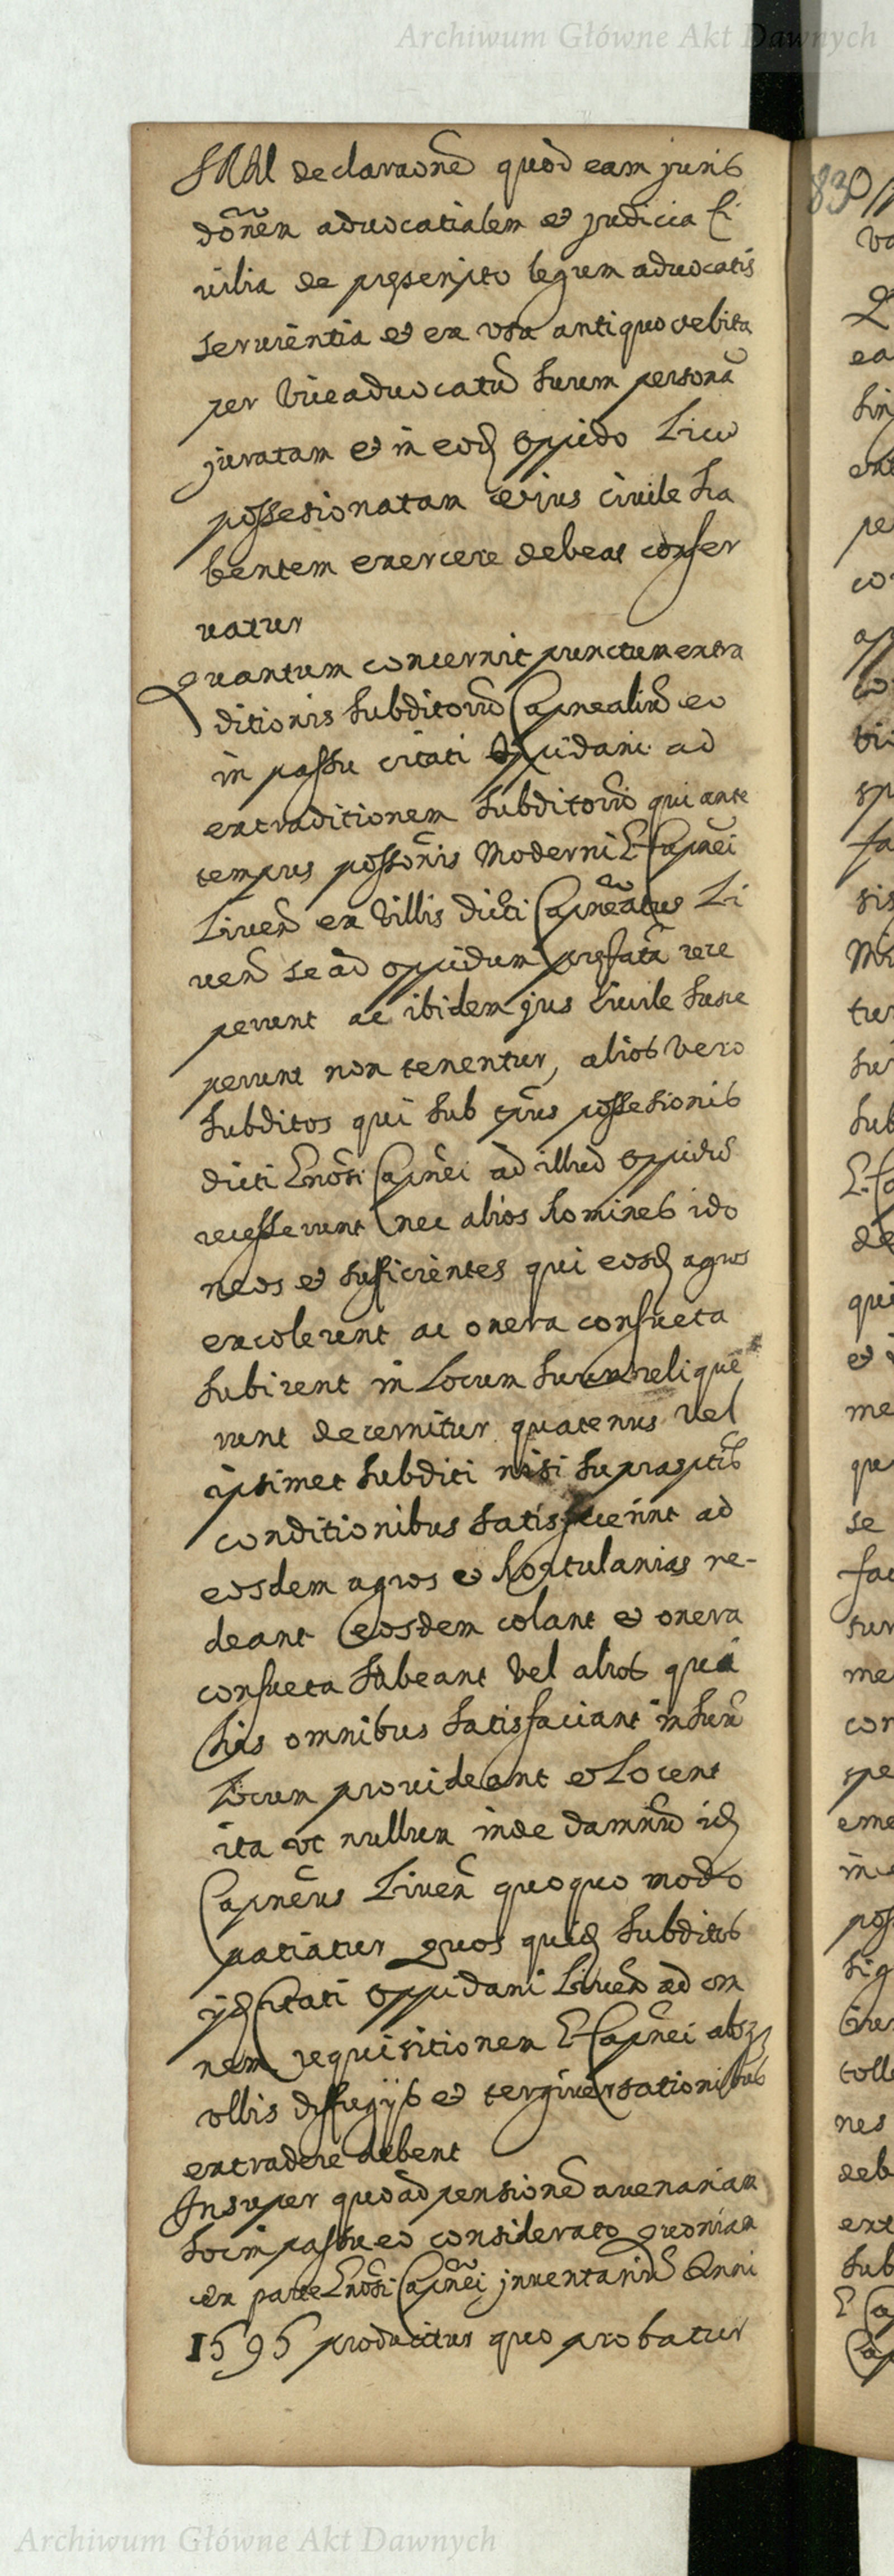 Archiwum Główne Akt Dawnych
SRM declaraone quod eam juris
830
donem advocatialem et judicia Ci
vilia de prescripto legum advocatis
servientia et ex usu antiquo debita
per viceadvocatu suum persona
juratam et in eod oppido Liw
possesionatam et jus civile ha
bentem exercere debeat conser
vatur
Quantum concernit punctum extra
ditionis subditoru Capnealiu eo
in passu citati oppidani ad
extraditionem subditoru qui ante
tempus possonis moderni E Capnei
Liven ex villis dicti Capneatus Li
ven se ad oppidum prefata rece
perunt ac ibidem jus civile susce
perunt non tenentur, alios vero
subditos qui sub tpus possesionis
dicti Gnosi Capnei ad illud oppidu
recesserunt nec alios homines ido
neos et suficientes qui eosd agros
excolerent ac onera consueta
subirent in locum suum relique
runt decernitur quatenus vel
ipsimet subditi nisi suprasptis
conditionibus satisfecerint ad
eosdem agros et hortulanias re-
deant eosdem colant et onera
consueta subeant vel alios qui
his omnibus satisfaciant in suu
Locum provideant et Locent
ita ut nullum inde damnu id
Capneus Liven quoquo modo
patiatur quos quid subditos
ijd citati oppidani Liven ad om
nem requisitionem E Capnei absq
ullis diffugijs et tergiversationibus
extradere debent
Insuper quoad pensione avenariam
hoc in passu eo considerato quoniam
ex parte Gnosi Capnei inventariu Anni
1595 producitur quo probatur
Archiwum Główne Akt Dawnych